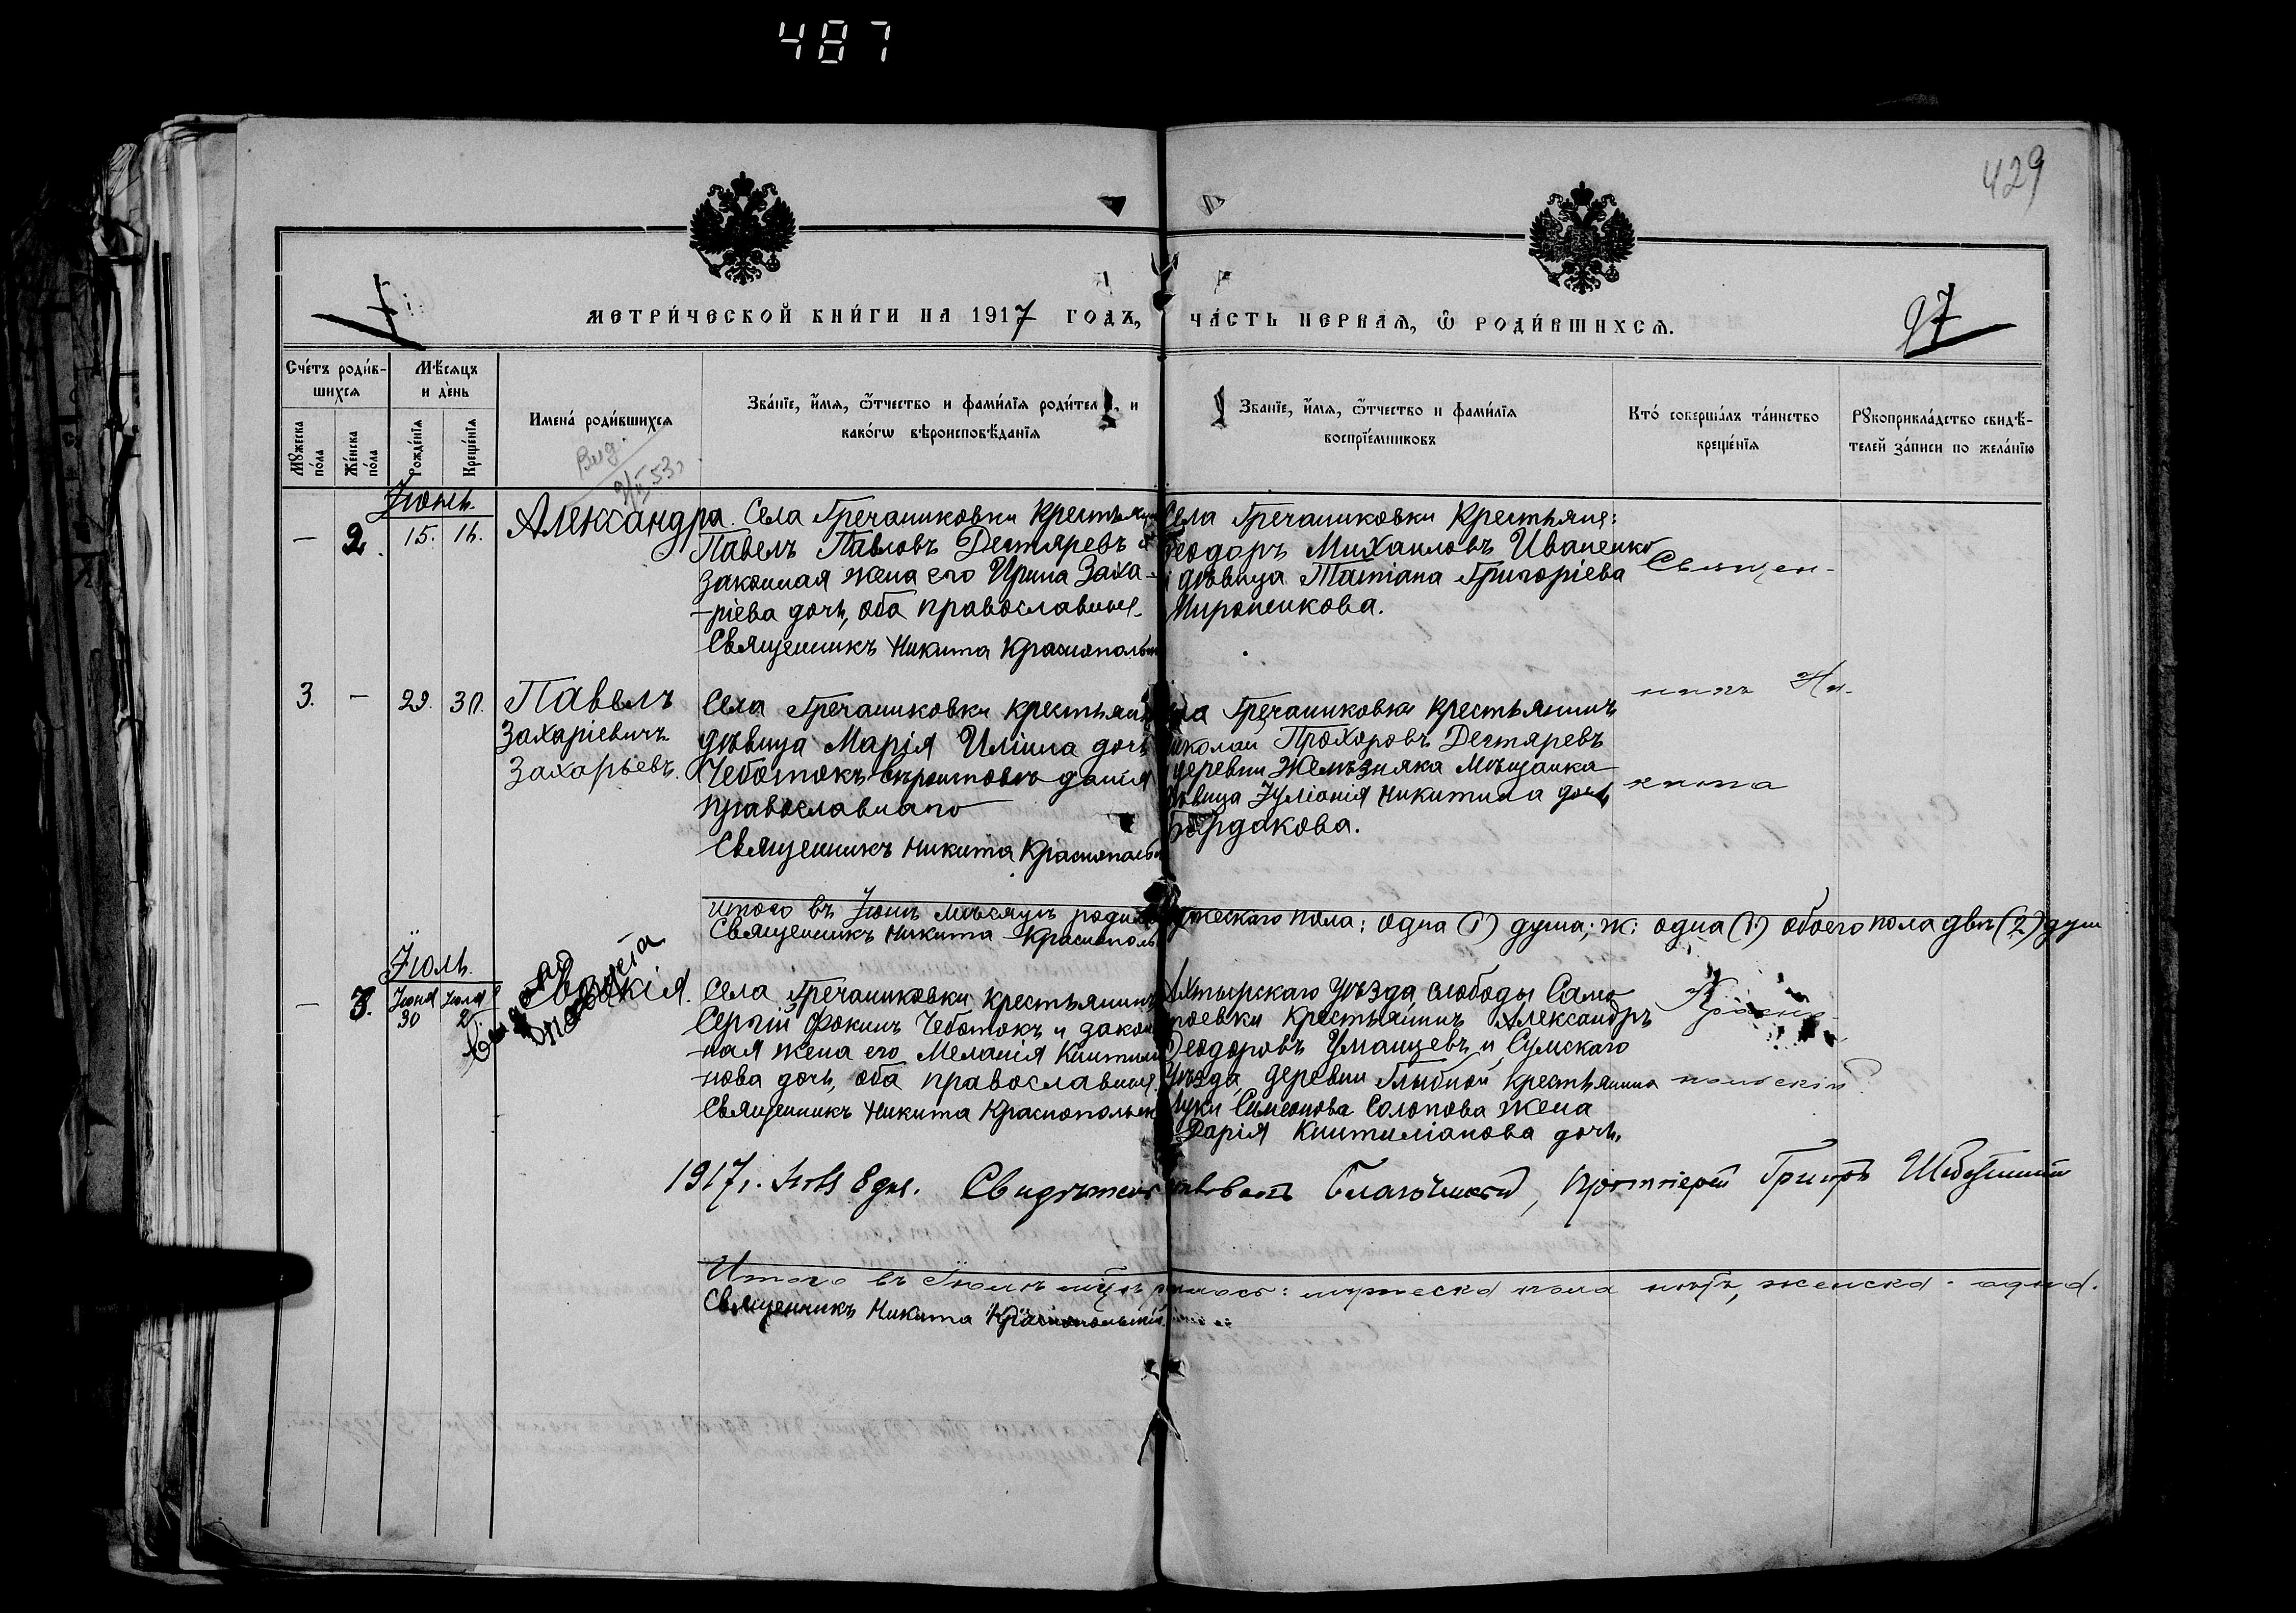 487
429
МЕТРИ́ЧЕСКОЙ КНИ́ГИ НА 1917 ГОДЪ, ЧА́СТЬ ПЕРВАЯ, Ѿ РОДИ́ВШИХСЯ.
97
Сче́тъ роди́в-
шихся
Мѣсяцъ
и де́нь
Мꙋжеска
по́ла
Же́нска
по́ла
Рожде́нїя
Креще́нїя
Имена́ роди́вшихся
Зва́нїе, и҆́мя, ѻ҆́тчество и фами́лїя роди́тел и
како́гѡ вѣроисповѣ́данїя
Зва́нїе, и҆́мя, ѻ҆́тчество и фами́лїя
воспрїе́мниковъ
Кто́ соверша́лъ та́инство
креще́нїя
Рꙋкоприкла́дство свидѣ́-
телей за́писи по жела́нїю
Вид.
53
Іюнь.
— 2. 15. 16. Александра.
Села Гречаниковки крестьянинъ
Павелъ Павловъ Дегтяревъ и
законная жена его Ирина Заха-
-ріева дочь, оба православные.
Священникъ Никита Краснопольскій
Села Гречаниковки крестьяне:
Ѳеодоръ Михаиловъ Иваненко
и дѣвица Татіана Григоріева
Мироненкова.
Священ-
никъ Ни-
кита
Красно-
польскій
3. — 29. 30. Павелъ
Захаріевичъ
Захарьевъ.
Села Гречаниковки крестьян
дѣвица Марія Иліина дочь
Чеботокъ
православнаго
Священникъ Никита Краснополь
Села Гречаниковки крестьянинъ
Николай Прохоровъ Дегтяревъ
деревни Желѣзняка мѣщанка
дѣвица Іуліанія Никитина дочь
Бардакова.
Итого въ Іюнѣ мѣсяцѣ родилось мужескаго пола: одна (1) душа; ж: одна (1) обоего пола двѣ (2) душ
Священникъ Никита Краснополь
Іюль.
— 3. Іюня 30 Іюля 2 Евдокія.
Села Гречаниковки крестьянинъ
Сергій Фокинъ Чеботокъ и закон
-ная жена его Меланія
-нова дочь, оба православные.
Священникъ Никита Краснопольск
Ахтырскаго уѣзда, слободы Само
тоевки крестьянинъ Александръ
Ѳеодоровъ Уманцевъ и Сумскаго
уѣзда, деревни Глыбной крестьянина
Луки Симеонова Солопова жена
Дарія дочь.
1917 г. 8 дня. Свидѣтельствовалъ Благочинный, Протоіерей
Итого въ Іюлѣ мцѣ родилось: мужеска пола нѣтъ, женска - одна.
Священникъ Никита Краснопольскій.